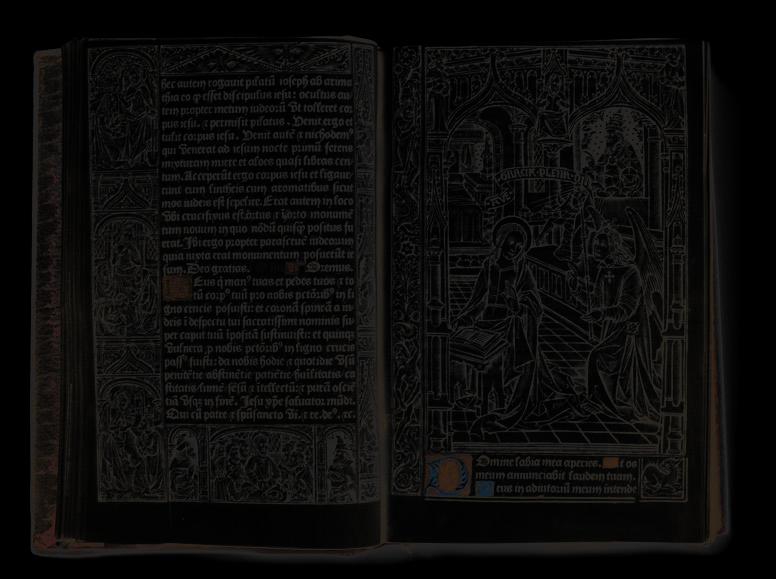 hec autem rogauit pilatū ioseph ab arima
thia eo ꝙ esset discipulus iesu: ocultus au
tem propter metum iudeorū Vt tolleret cor
pus iesu. ⁊ permisit pilatus. Venit ergo et
tulit corpus iesu. Venit autē ⁊ nichodemꝰ
qui Venerat ad iesum nocte primū ferens
mixturam mirre et aloes quasi libras cen
tum. Acceperūt ergo corpus iesu et ligaue
runt eum lintheis cum aromatibus sicut
mos iudeis est sepelire. Erat autem in loco
Vbi crucifixus est ortus ⁊ in orto monumē
tum nouum in quo nōdū quisꝙ positus fu
erat. Ibi ergo propter parasceuē iudeorum
quia iuxta erat monumentum posuerūt ie
sum. Deo gratias. Oremus.
Eus q̄ manꝰ tuas et pedes tuos ⁊ to
tū corpꝰ tuū pro nobis pctōribꝰ in li
gno crucis posuisti: et coronā spineā a iu
deis ī despectu tui sacratissimi nominis su
per caput tuū īpositā sustinuisti: et quinqꝫ
Vulnera ꝓ nobis pctōribꝰ in ligno crucis
passꝰ fuisti: da nobis hodie ⁊ quotidie Vsū
penitētie abstinētie patiētie hūilitatis ca
stitatis lumē sēsū ⁊ itellectū: ⁊ purā ꝯsciē
tiā Vsqꝫ in finē. Iesu xp̄e saluator mūdi.
Qui cū patre ⁊ spūsancto Vi. ⁊ re. deꝰ. ⁊c.
AVE GRACIA PLENA
Domine labia mea aperies. Et os
meum annunciabit laudem tuam.
Deus in adiutoriū meum intende